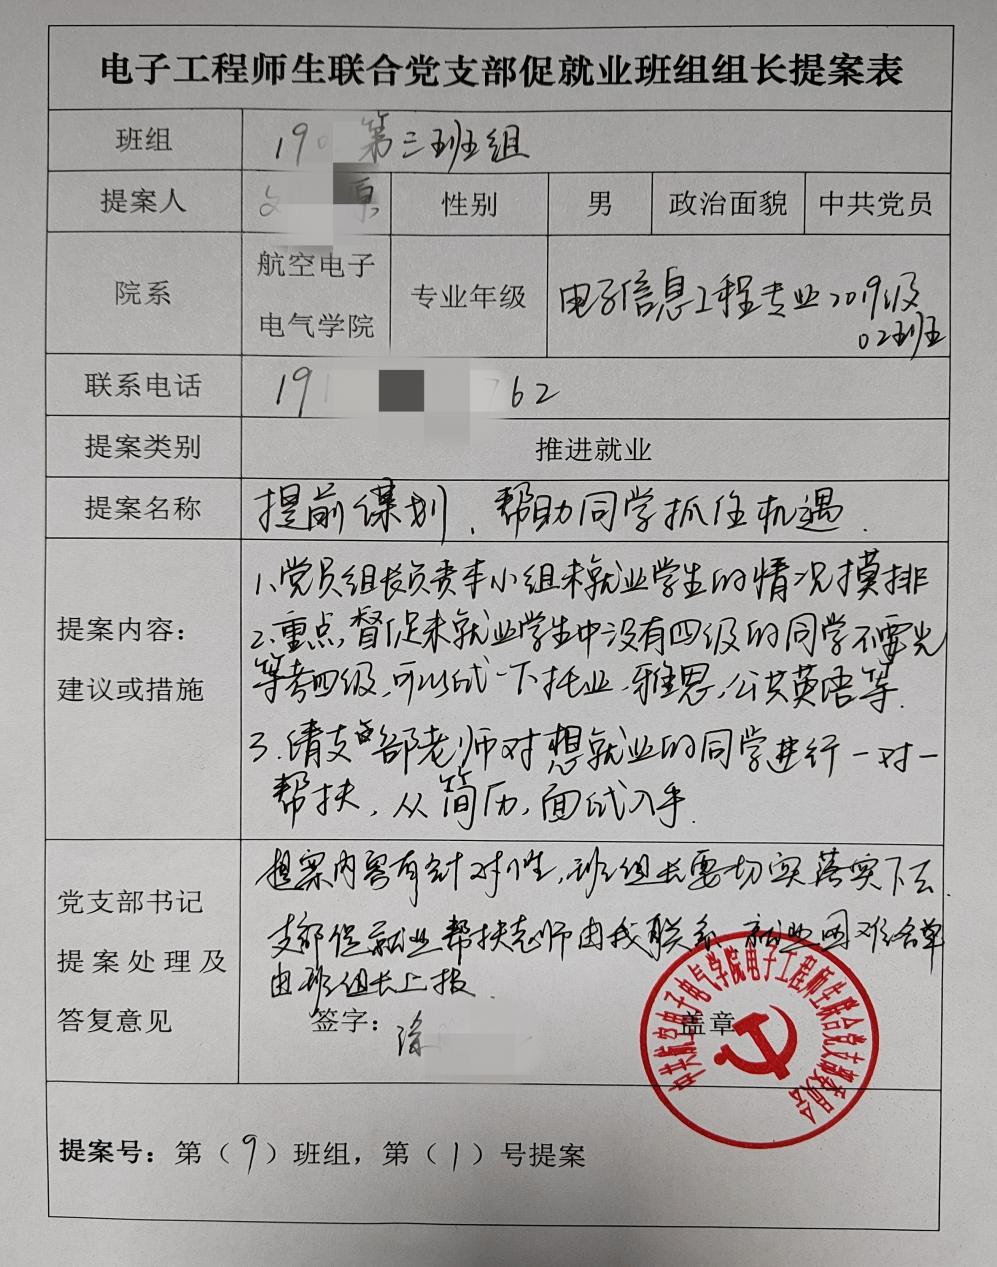 电子工程师生联合党支部促就业班组组长提案表
班组 19 第三班组
提案人 原 性别 男 政治面貌 中共党员
院系 航空电子
电气学院 专业年级 电子信息工程专业2019级
02班
联系电话 19 762
提案类别 推进就业
提案名称 提前谋划、帮助同学抓住机遇.
提案内容:
建议或措施
1、党员组长负责本小组未就业学生的情况摸排
2.重点督促未就业学生中没有四级的同学不要光
等考四级,可以试一下托业、雅思,公共英语等.
3.请支部老师对想就业的同学进行一对一
帮扶,从简历,面试入手.
党支部书记
提案处理及
答复意见
提案内容有针对性,班组长要切实落实下去.
支部促就业帮扶老师由我联系 就业困难名单
由班组长上报.
签字: 徐 盖章
中共航空电子电气学院电子工程师生联合党支部委员会
提案号:第(9)班组,第(1)号提案